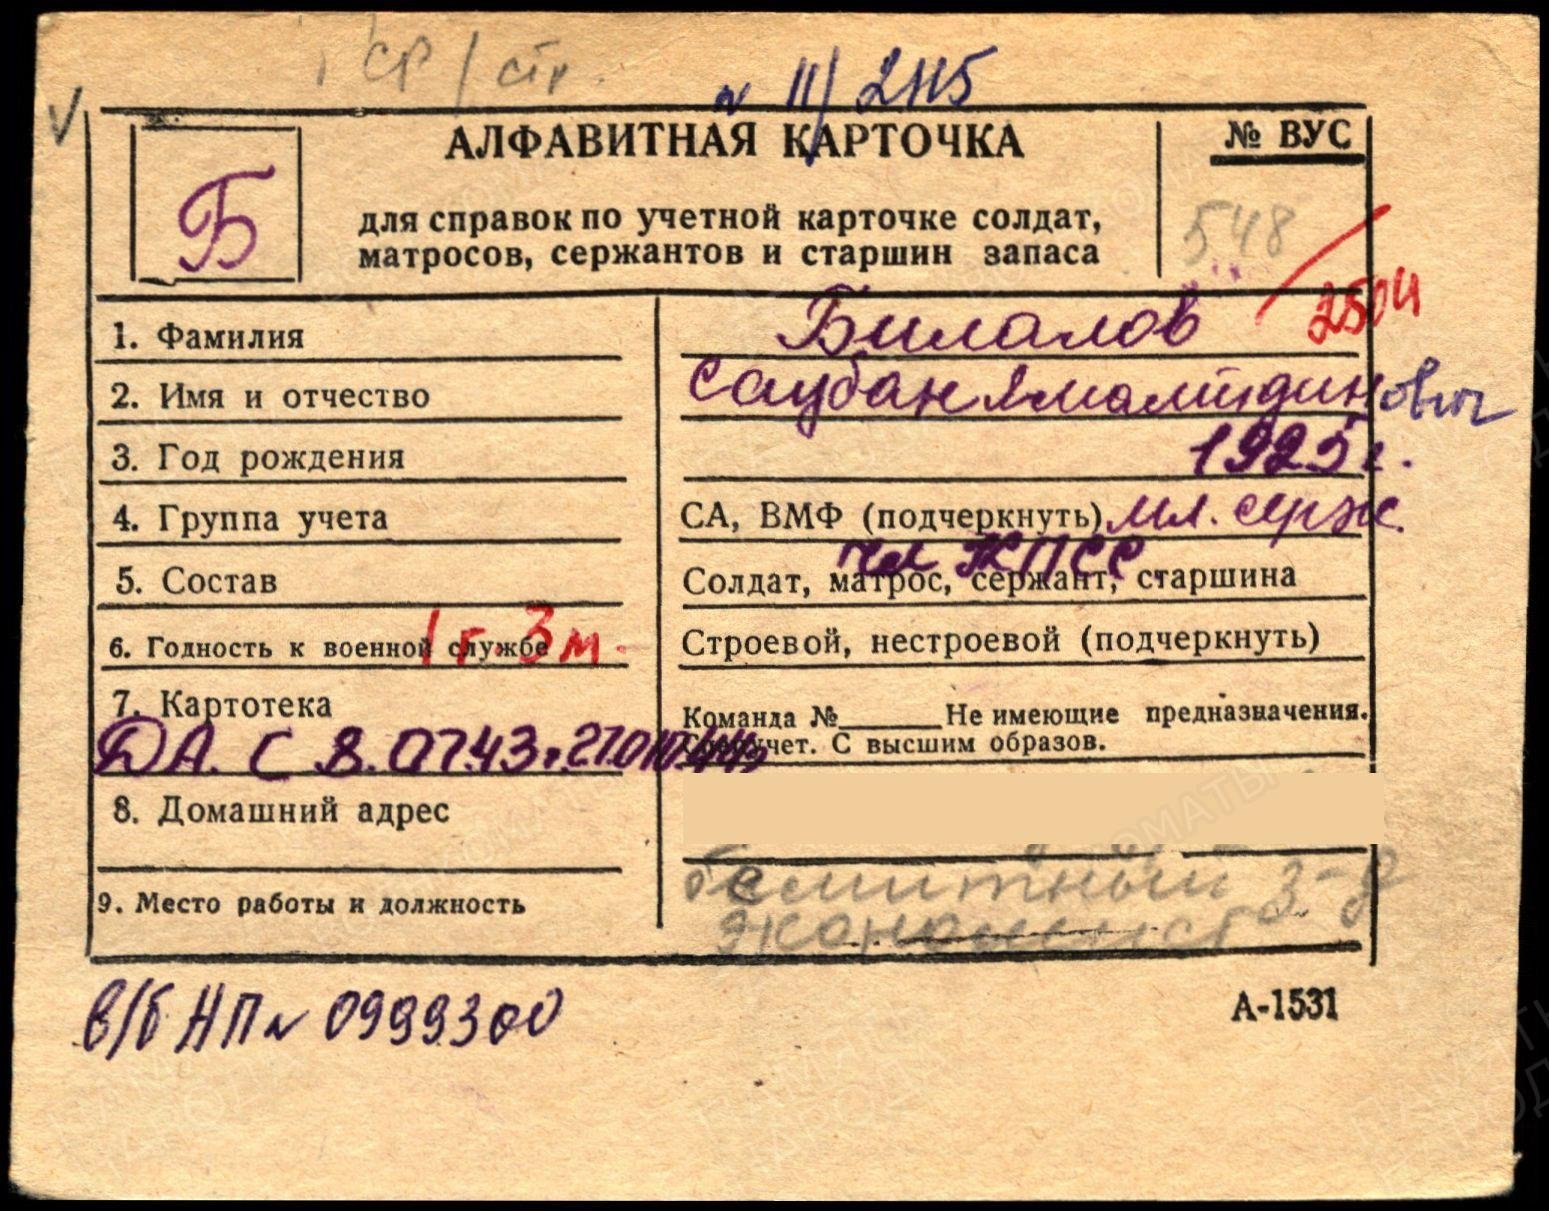 СР / стр.
№ III/2115
АЛФАВИТНАЯ КАРТОЧКА
№ ВУС
Б
для справок по учетной карточке солдат,
матросов, сержантов и старшин запаса
548
250Ч
1. Фамилия
Билалов
2. Имя и отчество
Саубан Ямалтдинович
3. Год рождения
1925 г.
4. Группа учета
СА, ВМФ (подчеркнуть) мл. серж.
чл КПСС
5. Состав
Солдат, матрос, сержант, старшина
6. Годность к военной службе
1 г. 3 м.
Строевой, нестроевой (подчеркнуть)
7. Картотека
Команда №______Не имеющие предназначения.
Спецучет. С высшим образов.
ДА. с 8.07.43г.
8. Домашний адрес
9. Место работы и должность
з-д
экономист
в/б НП № 0999300
А-1531